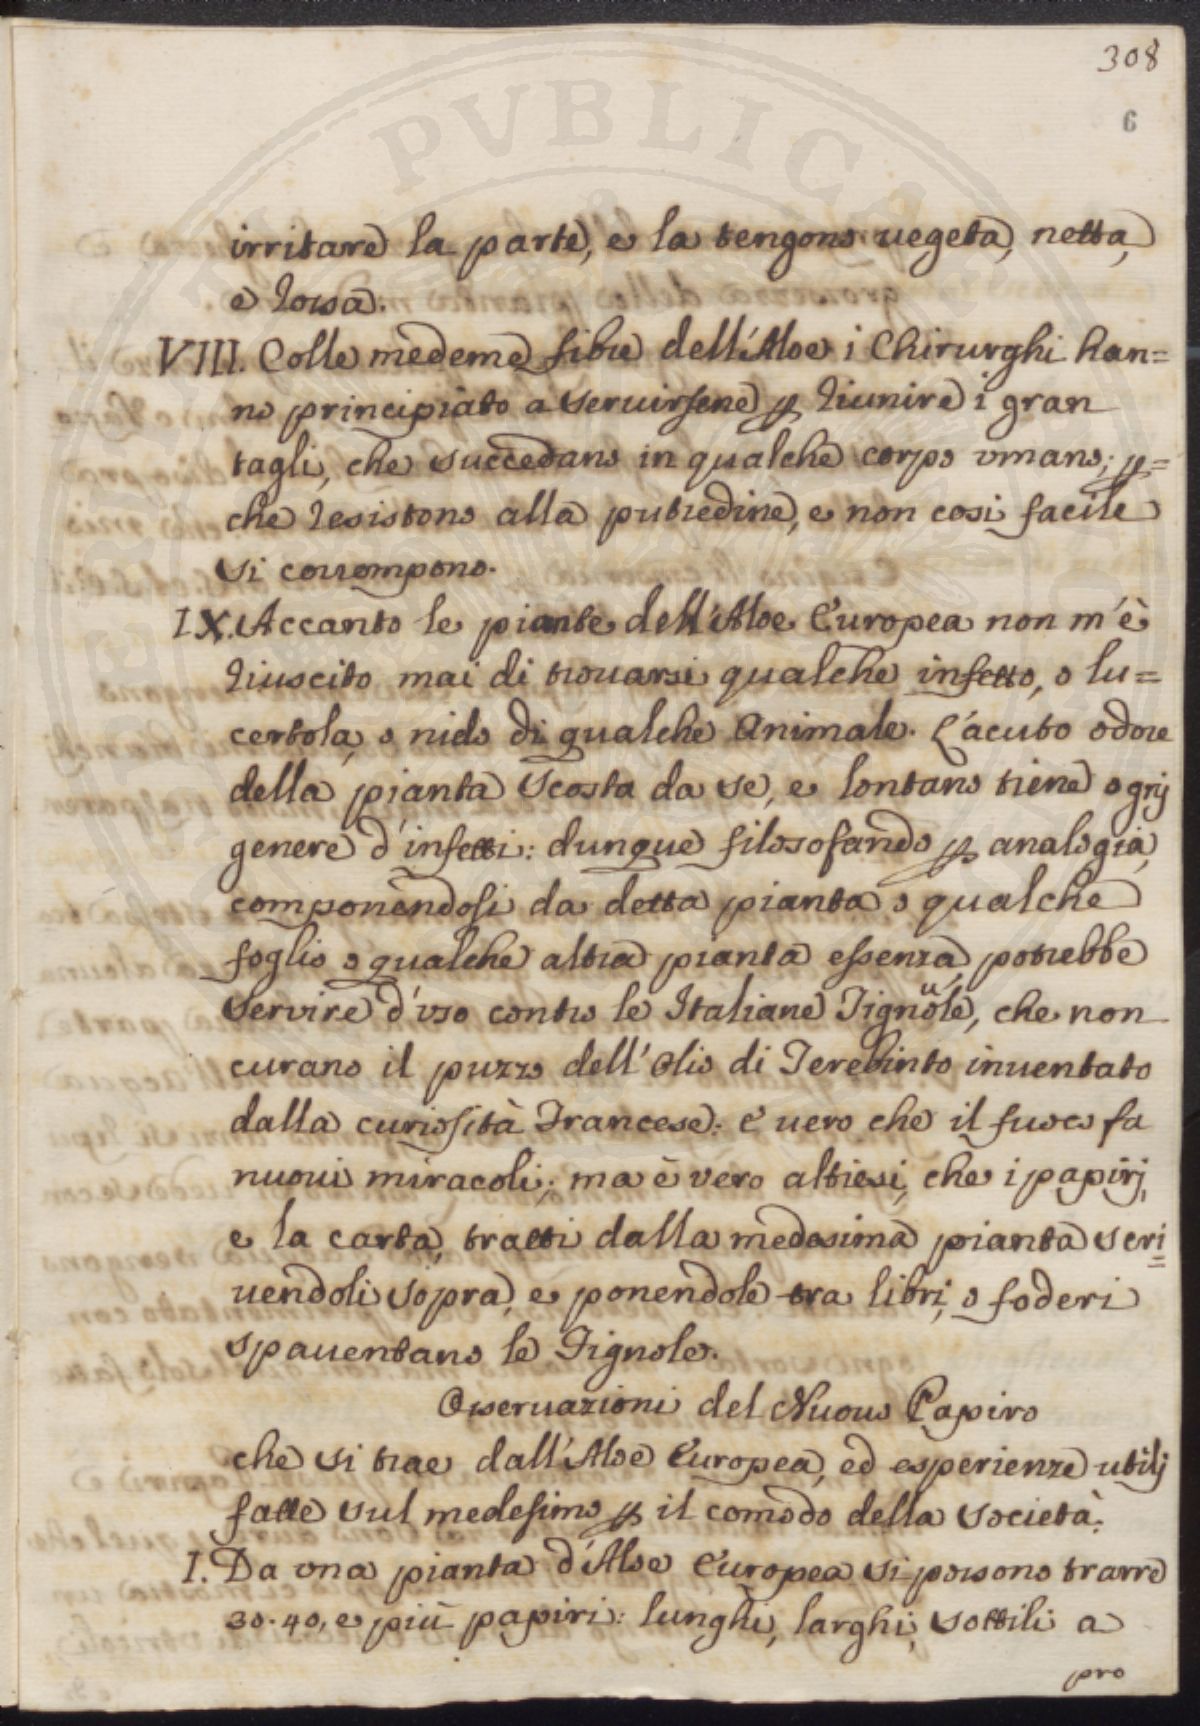 308
6
irritare la parte, e la tengono uegeta, netta,
e rossa.
VIII. Colle medeme fibre dell'Aloe i Chirurghi han=
no principiato a servirsene ꝑ riunire i gran
tagli, che succedano in qualche corpo vmano; ꝑ=
che resistono alla putredine, e non cosi facile
si corrompono.
IX. Accanto le piante dell'Aloe Europea non m'è
riuscito mai di trouarsi qualche insetto, o lu=
certola, o nido di qualche Animale. L'acuto odore
della pianta scosta da se, e lontano tiene ogni
genere d'insetti: dunque filosofando ꝑ analogia,
componendosi da detta pianta o qualche
foglio o qualche altra pianta essenza, potrebbe
servire d'vso contro le Italiane Tignüole, che non
curano il puzzo dell'Olio di Terebinto inuentato
dalla curiosità Francese: e uero che il fuoco fa
nuoui miracoli; ma è vero altresi, che i papirj,
e la carta, tratti dalla medesima pianta scri=
uendoli sopra, e ponendole tra librj, o foderi
spauentano le Tignole.
Osseruazioni del Nuouo Papiro
che si trae dall'Aloe Europea, ed esperienze utilj
fatte sul medesimo ꝑ il comodo della società.
I. Da vna pianta d'Aloe Europea si possono trarre
30. 40, e più papiri: lunghi, larghi, sottili a
pro
PVBLICA